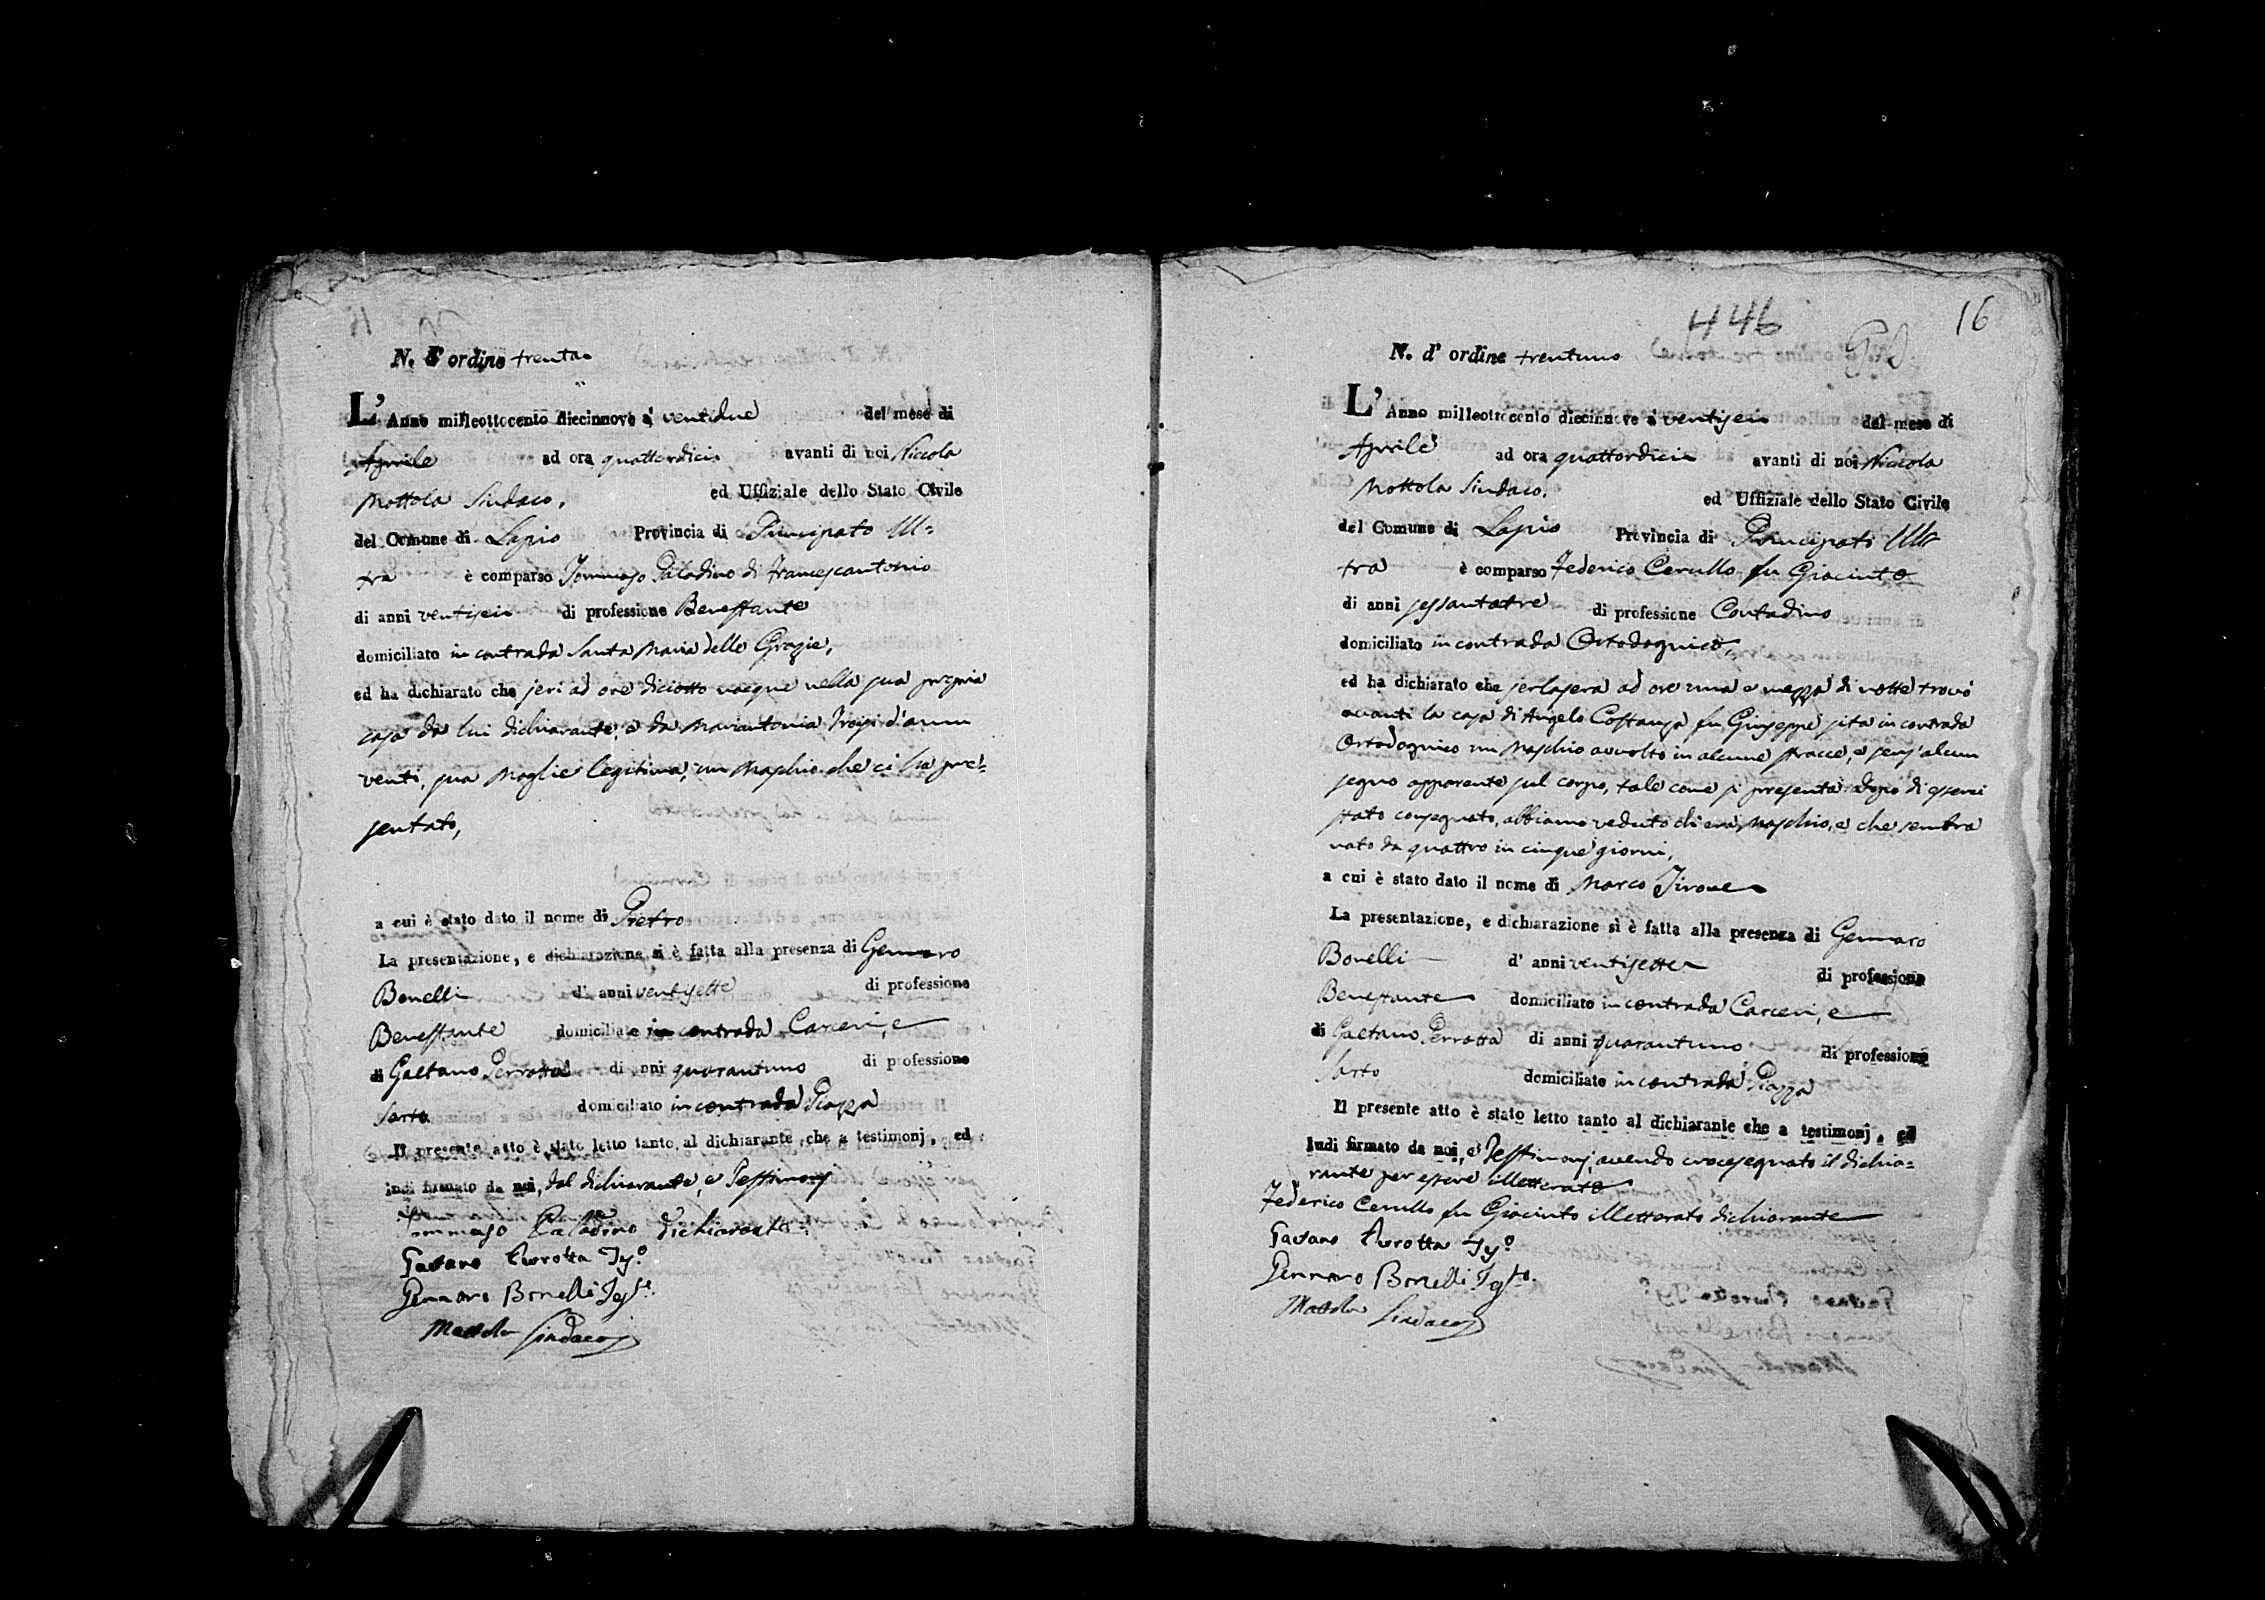 N. d' ordine trenta
L' Anno milleottocento diecinnove a' ventidue del mese di
Aprile ad ora quattordici avanti di noi Niccola
Mottola Sindaco, ed Uffiziale dello Stato Civile
del Comune di Lapio Provincia di Principato Ul=
tra è comparso Tommaso Paladino di Francescantonio
di anni ventisei di professione Benestante
domiciliato in contrada Santa Maria delle Grazie,
ed ha dichiarato che jeri ad ore diciotto nacque nella sua propria
casa da lui dichiarante, e da Mariantonia Troisi d'anni
venti, sua Moglie legitima, un Maschio che ci ha pre=
sentato,
a cui è stato dato il nome di Pietro
La presentazione, e dichiarazione si è fatta alla presenza di Gennaro
Bonelli d' anni ventisette di professione
Benestante domiciliato in contrada Carceri, e
di Gaetano Perrotta di anni quarantuno di professione
Sarto domiciliato in contrada Piazza
Il presente atto è stato letto tanto al dichiarante, che a testimonj, ed
indi firmato da noi, dal dichiarante, e Testimonj
Tommaso Paladino dichiarante
Gaetano Perrotta
Gennaro Bonelli
Mottola Sindaco
446
16
N. d' ordine trentuno
L' Anno milleottocento diecinnove a' ventisei del mese di
Aprile ad ora quattordici avanti di noi Niccola
Mottola Sindaco, ed Uffiziale dello Stato Civile
del Comune di Lapio Provincia di Principato Ul
tra è comparso Federico Cerullo fu Giacinto
di anni sessantatre di professione Contadino
domiciliato in contrada Ortodognico,
ed ha dichiarato che jerlasera ad ore una e mezza di notte trovò
avanti la casa di Angelo Costanza fu Giuseppe sita in contrada
Ortodognico un Maschio avvolto in alcune stracce, e senz'alcun
segno apparente sul corpo, tale come si presenta dopo di esserci
stato consegnato, abbiamo veduto ch'era Maschio, e che sembra
nato da quattro in cinque giorni,
a cui è stato dato il nome di Marco Tirone
La presentazione, e dichiarazione si è fatta alla presenza di Gennaro
Bonelli d' anni ventisette di professione
Benestante domiciliato in contrada Carceri, e
di Gaetano Perrotta di anni quarantuno di professione
Sarto domiciliato in contrada Piazza
Il presente atto è stato letto tanto al dichiarante che a testimonj, ed
Indi firmato da noi, e Testimonj, avendo crocesegnato il dichia=
rante per essere illetterato
Federico Cerullo fu Giacinto illetterato dichiarante
Gaetano Perrotta
Gennaro Bonelli
Mottola Sindaco